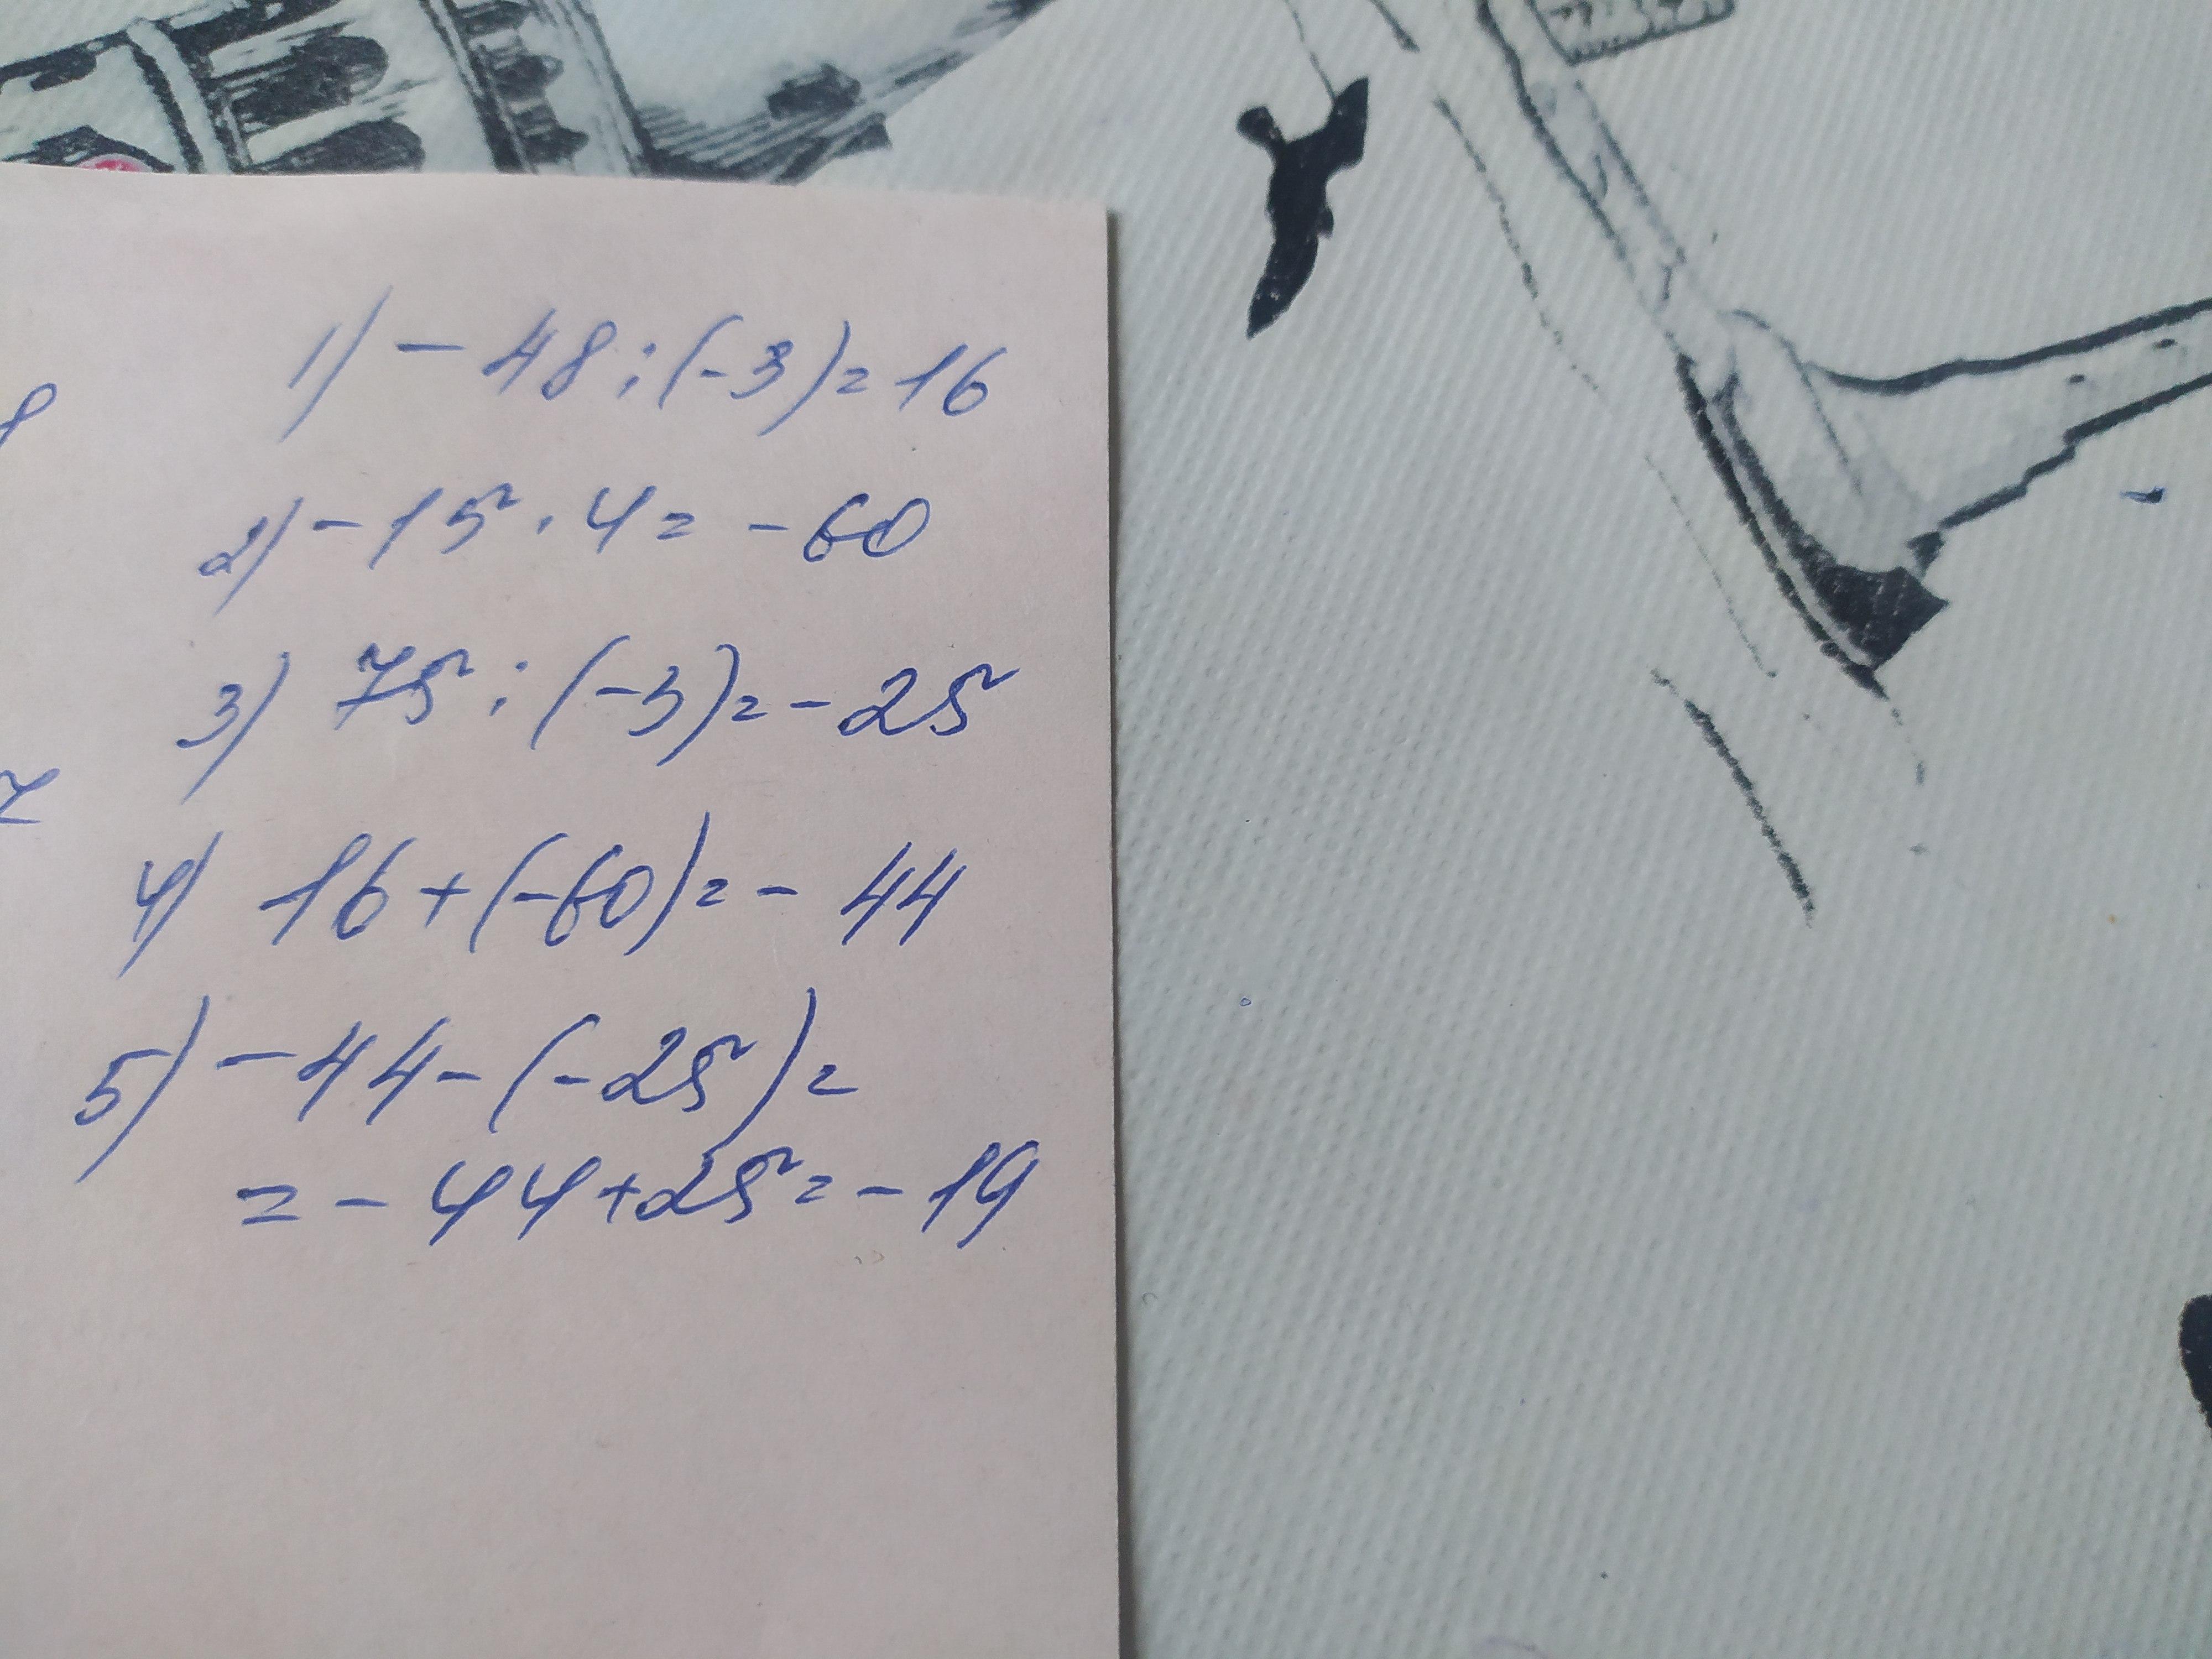 1) - 48 : (-3) = 16
2) - 15 · 4 = - 60
3) 75 : (-3) = - 25
4) 16 + (-60) = - 44
5) - 44 - (-25) =
= - 44 + 25 = - 19